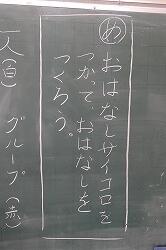 め
おはなしサイコロを
つかって、おはなしを
つくろう。
一人（白）
グループ（赤）